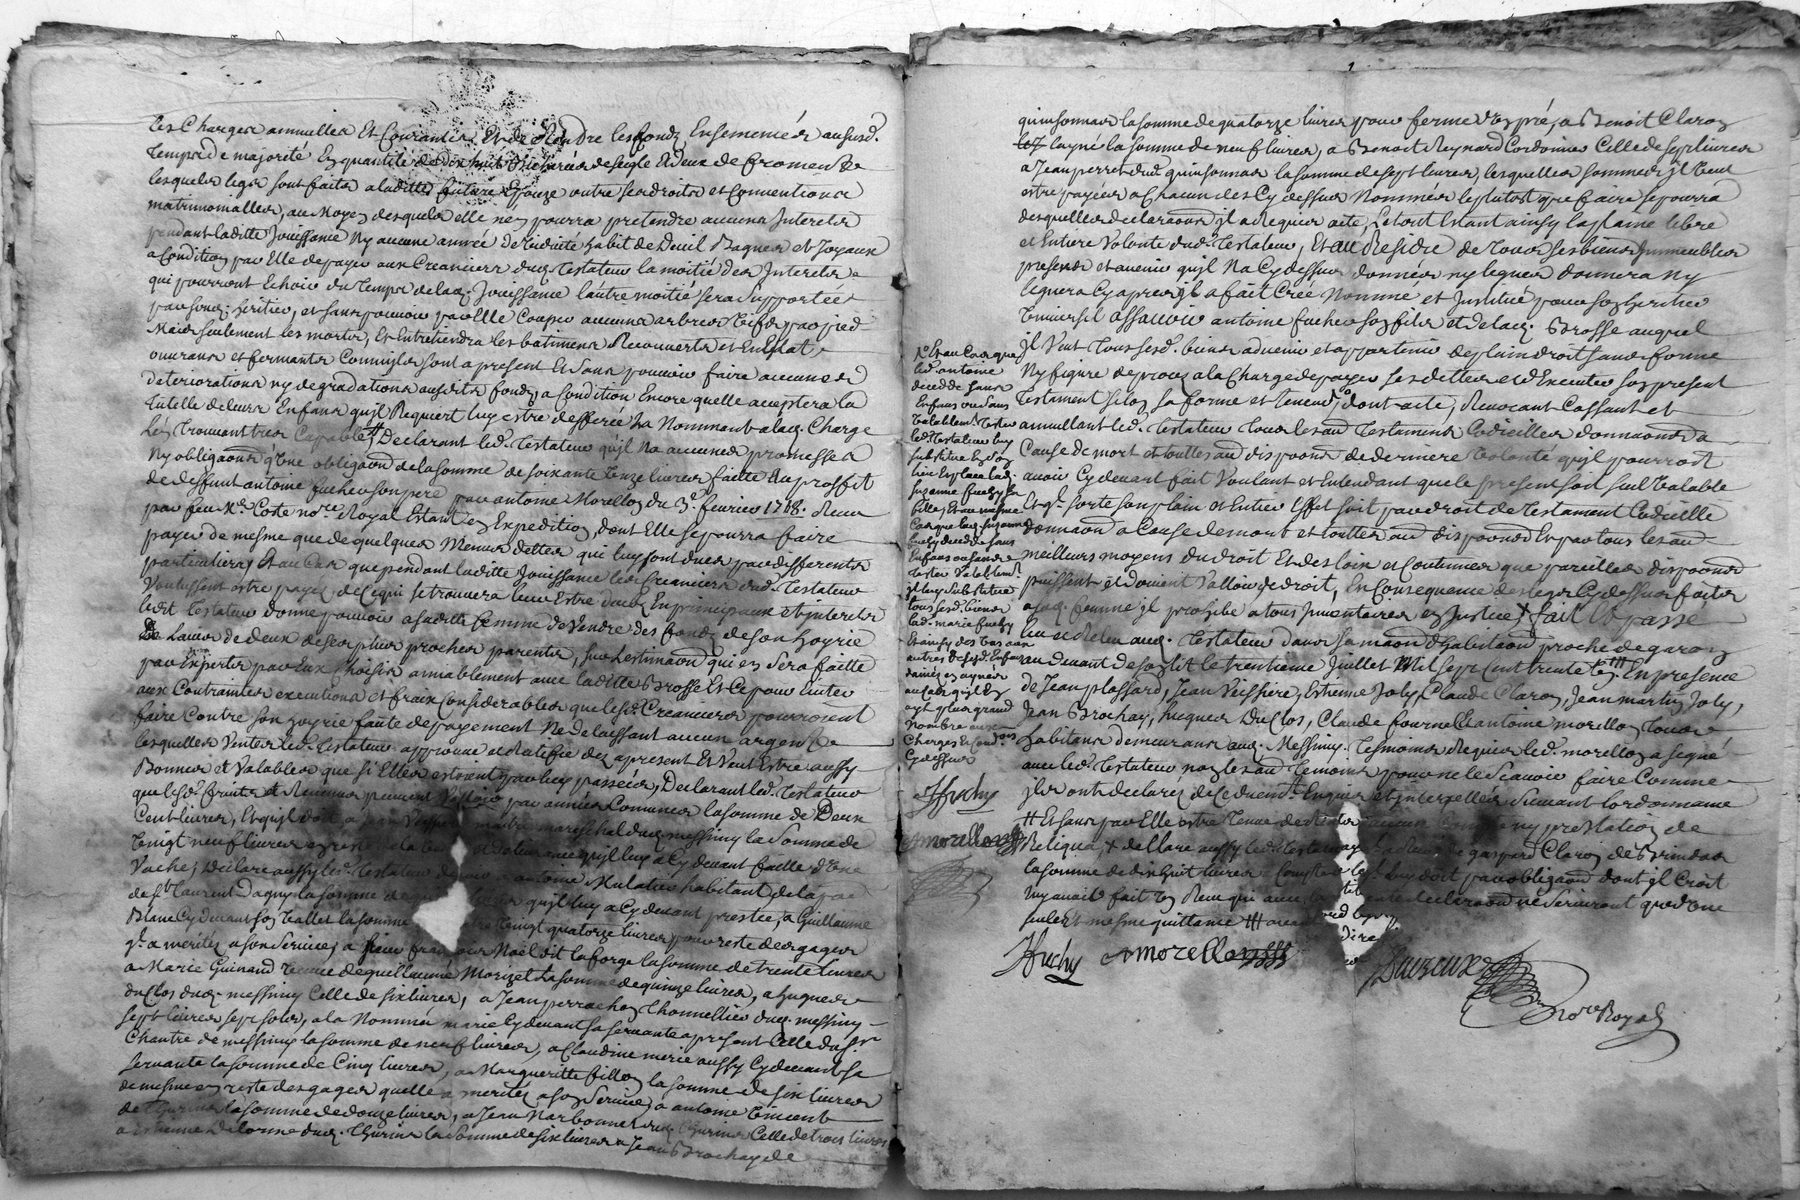 les Charges annuelles Et Courantes Et de Rendre les fondz Ensemencés aususd.
Temps de majorité En quantité de dix huit Bichères de seigle Et deux de froment
lesquels legs sont faits a laditte future Epouze outre ses droits et Conventions
matrimonialles, au moyen desquels elle ne pourra pretendre aucuns Interets
pendant laditte Jouissance Ny aucune année de viduité habit de Deuil Bagues et Joyaux
a Condition par Elle de payer aux Creanciers dud. Testateur la moitié des Interets
qui pourront Echoir du Temps de lad. Jouissance l'autre moitié sera Supportée
par sond. heritier, et sans pouvoir par Elle Couper aucuns arbres vifs par pied
Mais seulement les morts, et Entretiendra les batiments Recouverts et En Estat
ouvrants et fermants Comme ils sont a present Et sans pouvoir faire aucunes
deteriorations ny degradations ausdits fondz, a Condition Encore quelle acceptera la
Tutelle de leurs Enfans qu'il Requiert luy estre defferée La Nommant a lad. Charge
La Trouvant tres Capable # Declarant led. Testateur qu'il Na aucunes promesses
Ny obligaons q'une obligaon de la somme de soixante Unze livres faitte Au proffit
de deffunt antoine fuchey son pere par antoine Morellon du 3e. fevrier 1718. Receu
par feu Me. Coste nore. Royal Estant En Expedition, dont Elle se pourra faire
payer de mesme que de quelques Menues dettes qui luy sont dues par differents
particuliers, Et au Cas que pendant laditte Jouissance les Creanciers dud. Testateur
Voulussent estre payés de Ce qui se trouvera leur Estre deub En principaux et interets
ledit testateur donne pouvoir a saditte femme de Vendre des fondz de son hoyrie
De Lavis de deux de ses plus proches parents, sur Lestimaon qui En sera faitte
par Experts par Eux Choisis amiablement avec laditte Brosse Et Ce pour Eviter
aux Contraintes executions et fraix Considerables que lesd. Creanciers pourroient
faire Contre son hoyrie faute de payement Ne delaissant aucun argent
lesquelles Ventes led. Testateur approuve et Ratifie des apresent Et Veut Estre aussy
Bonnes et Valables que si Elles estoient par luy passées, Declarant led. Testateur
que lesd. fruits et Revenus peuvent Valloir par années Communes la somme de Deux
Cent livres, Et qu'il doit a Jean mareschal dud. messimy la Somme de
Vingt neuf livres qu'il luy a Cy devant faitte d'Une
Vache, Declare aussy led. Testateur devoir a antoine Mulatier habitant de la
de St. Laurent Dagny la somme de qu'il luy a Cy devant prestée, a Guillaume
Blanc Cy devant son Vallet la somme Vingt quatorze livres pour reste de ses gages
q'l a merités a son Service, a sieur françois Noël dit la forge la somme de trente livres
a Marie Guinand veuve de guillaume Morizet La somme de quinze livres, a hugues
duclos dud. messimy Celle de six livres, a Jean perrachon Thonnellier dud. messimy
sept livres sept sols, a la Nommée marie Cy devant sa servante a present Celle du Sr.
Chantre de messimy la somme de neuf livres, a Claudine merie aussy Cy devant sa
servante la somme de Cinq livres, a Margueritte fillon la somme de six livres
de mesme En reste des gages quelle a merités a son Service, a antoine Vincent
de Thurins la somme de douze livres, a Jean Narbonnet dud. Thurins Celle de trois livres
a Estienne Delorme dud. Thurins la somme de six livres a Jean Brochay de
quinsonnas la somme de quatorze livres pour ferme d'un pré, a Benoit Claron
layné la somme de neuf livres, a Benoit Reynard Cordonnier Celle de sept livres
a Jean perret dud. quinsonnas la somme de sept livres, lesquelles sommes jl Veut
estre payées a Chacun des Cy dessus Nommés le plutost que faire se pourra
desquelles declaraons jl a Requier acte, Le tout Estant ainsy la plaine libre
et Entiere Volonté dud. Testateur, Et au Residu de tous ses biens Immeubles
presents et avenir qu'jl Na Cy dessus donnés ny legués donnera Ny
leguera Cy apres jl a fait Créé Nommé et Institué pour son heritier
Universel assavoir antoine fuchey son fils et de lad. Brosse auquel
jl Veut tous sesd. biens advenir et appartenir de plain droit sans forme
Ny figure de procez a la Charge de payer ses dettes et d'Executer son present
Testament selon sa forme et teneur, dont acte, Revocant Cassant et
annullant led. Testateur tous les aud Testaments Codicilles donnaons a
Cause de mort et touttes aud dispoons de derniere Volonté qu'jl pourroit
avoir Cy devant fait Voulant et Entendant que le present son seul Valable
Et q'l sorte son plain et Entier Effet soit par droit de Testament Codicille
donnaon a Cause de mort et touttes aud dispoons Et par tous les aud
meilleurs moyens du droit Et des loix et Coutumes que pareilles dispoons
puissent et doivent Valloir de droit, En Consequence des legs Cy dessus faits
a sad. femme jl prohibe a tous Inventaires En Justice, fait Et passé
Leu et Releu aud. Testateur dans sa maon d'habitaon proche de garon
au devant de son lit le trentieme Juillet Mil sept Cent trente En presence
de Jean plassard, Jean Veissiere, Estienne Joly, Claude Claron, Jean martin Joly,
Jean Brochay, hugues Duclos, Claude fournel Et antoine morellon tous
habitans demeurans aud. Messimy Tesmoins Requis led. morellon a signé
avec led. Testateur non les aud Temoins pour ne le Scavoir faire Comme
jls ont declarez de Ce duemt. Enquis et interpellés Suivant lordonnance
# Et sans par Elle estre tenue de rendre ny prestation de
Reliqua, declare aussy led. testateur de gaspard Claron de Brindas
la somme de dix huit livres luy doit par obligaon dont jl Croit
luy avoir fait Un Receu qui avec la declaraon ne serviront que d'une
seule Et mesme quittance
Et au Cas que
led. antoine
decedde sans
Enfans ou sans
Valablemt. Tester
led. Testateur luy
substitue En son
lieu Et place lad.
suzanne fuchy sa
fille, Et au mesme
Cas que lad. suzanne
fuchy decedde sans
Enfans ou sans
tester Valablemt.
jl luy substitue
tous sesd. biens
lad. marie fuchy
Et ainsy des Uns aux
autres desd. Enfans
Charges Et Condons.
Cy dessus
Afuchy
Amorellon
Afuchy Amorellon
Ducreux
Nore Royal